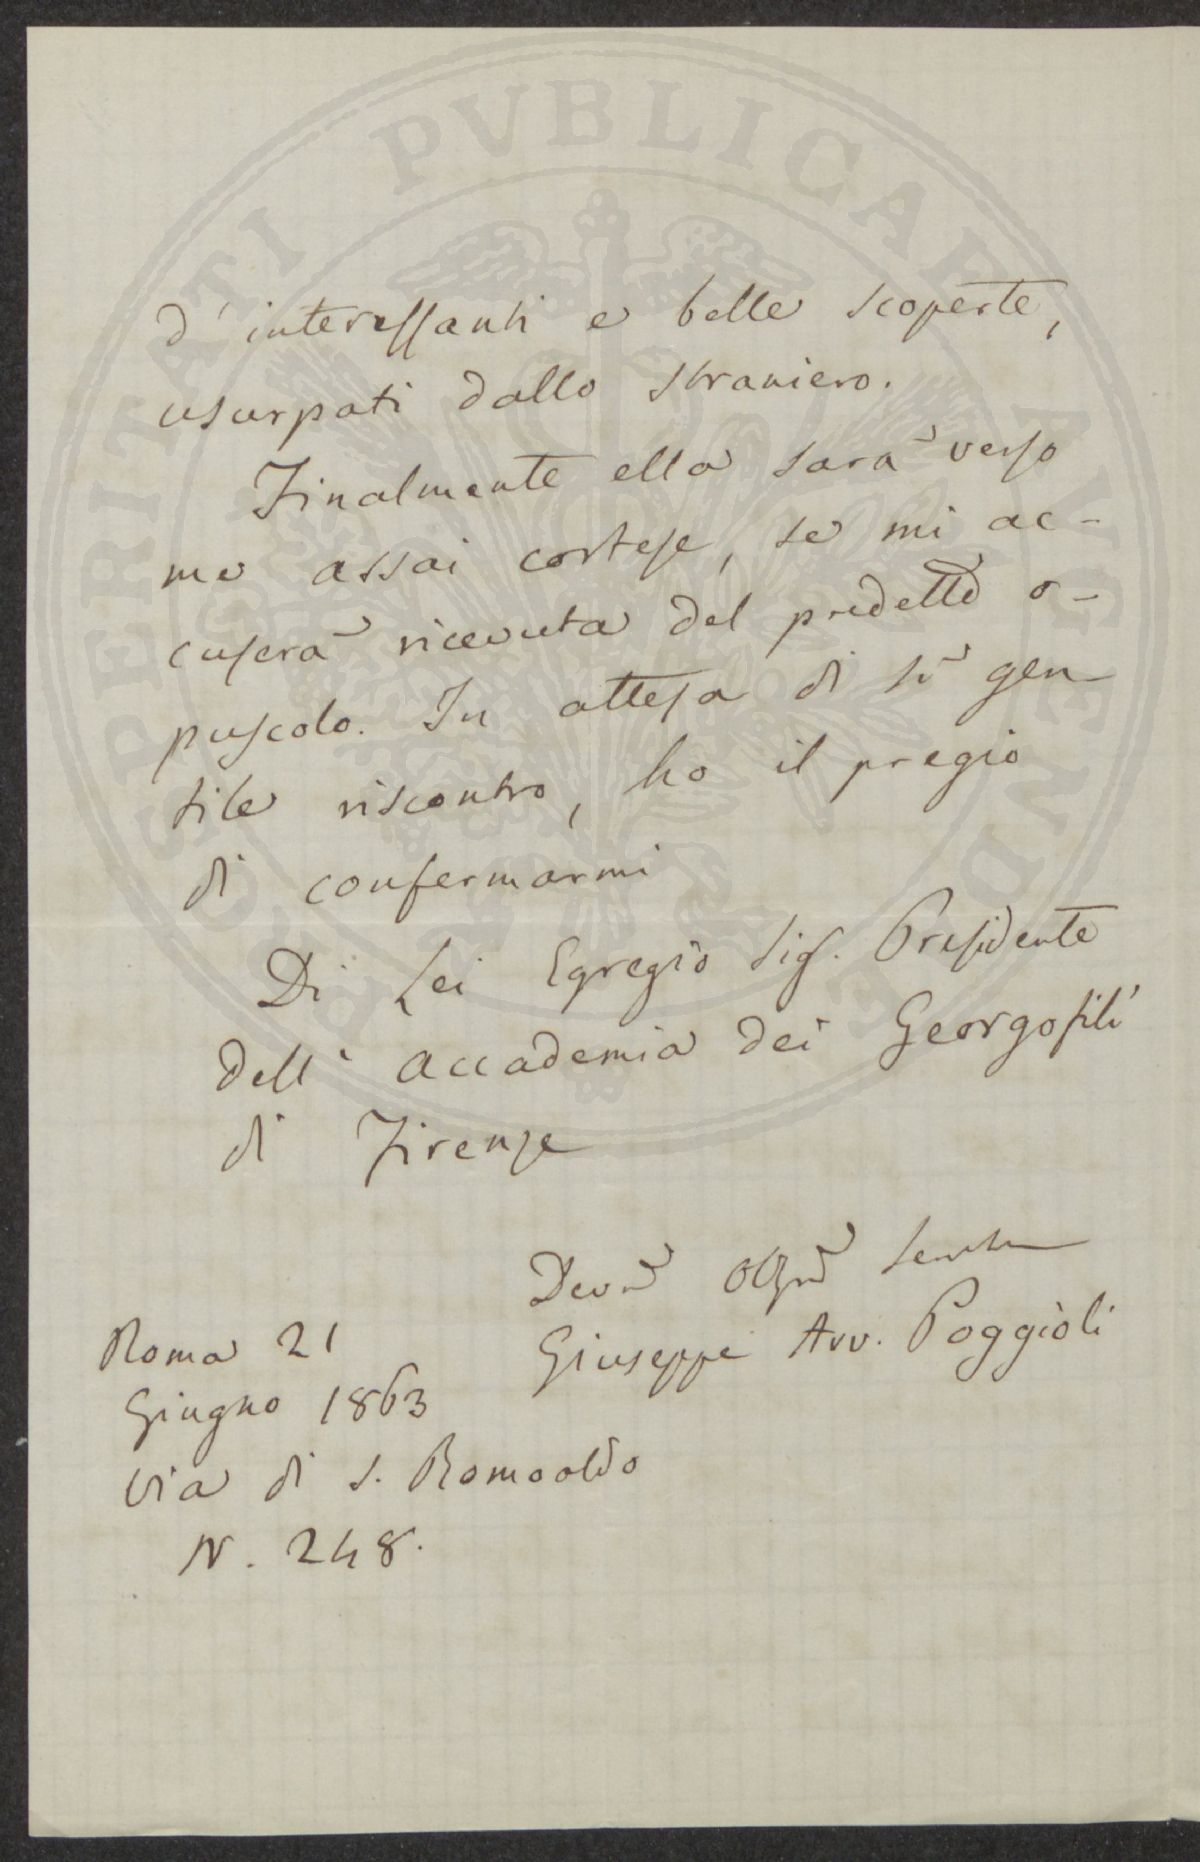 PROSPERITATI PVBLICAE AVGENDAE
d'interessanti e belle scoperte,
usurpati dallo straniero.
Finalmente ella sarà verso
me assai cortese, se mi ac-
cuserà ricevuta del predetto o-
puscolo. In attesa di sì gen
tile riscontro, ho il pregio
di confermarmi
Di Lei Egregio Sig. Presidente
dell' Accademia dei Georgofili
di Firenze
Giuseppe Avv. Poggioli
Roma 21
Giugno 1863
Via di S. Romoaldo
N. 248.